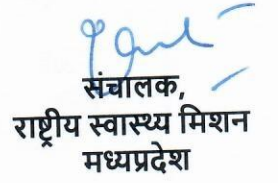 संचालक,
राष्ट्रीय स्वास्थ्य मिशन
मध्यप्रदेश